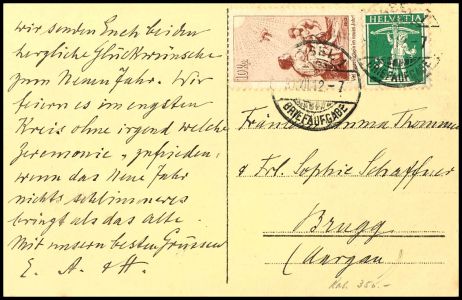 wir senden Euch beiden
herzliche Glückwünsche
zum Neuen Jahr. Wir
feiern es im engsten
Kreis ohne irgend welche
Zeremonie, zufrieden,
wenn das Neue Jahr
nichts schlimmeres
bringt als das alte.
Mit unsern besten Grüssen
E. A. & H.
HELVETIA
BRIEFAUFGABE
Emma Thommen
& Frl. Sophie Schaffner
Brugg
(Aargau)